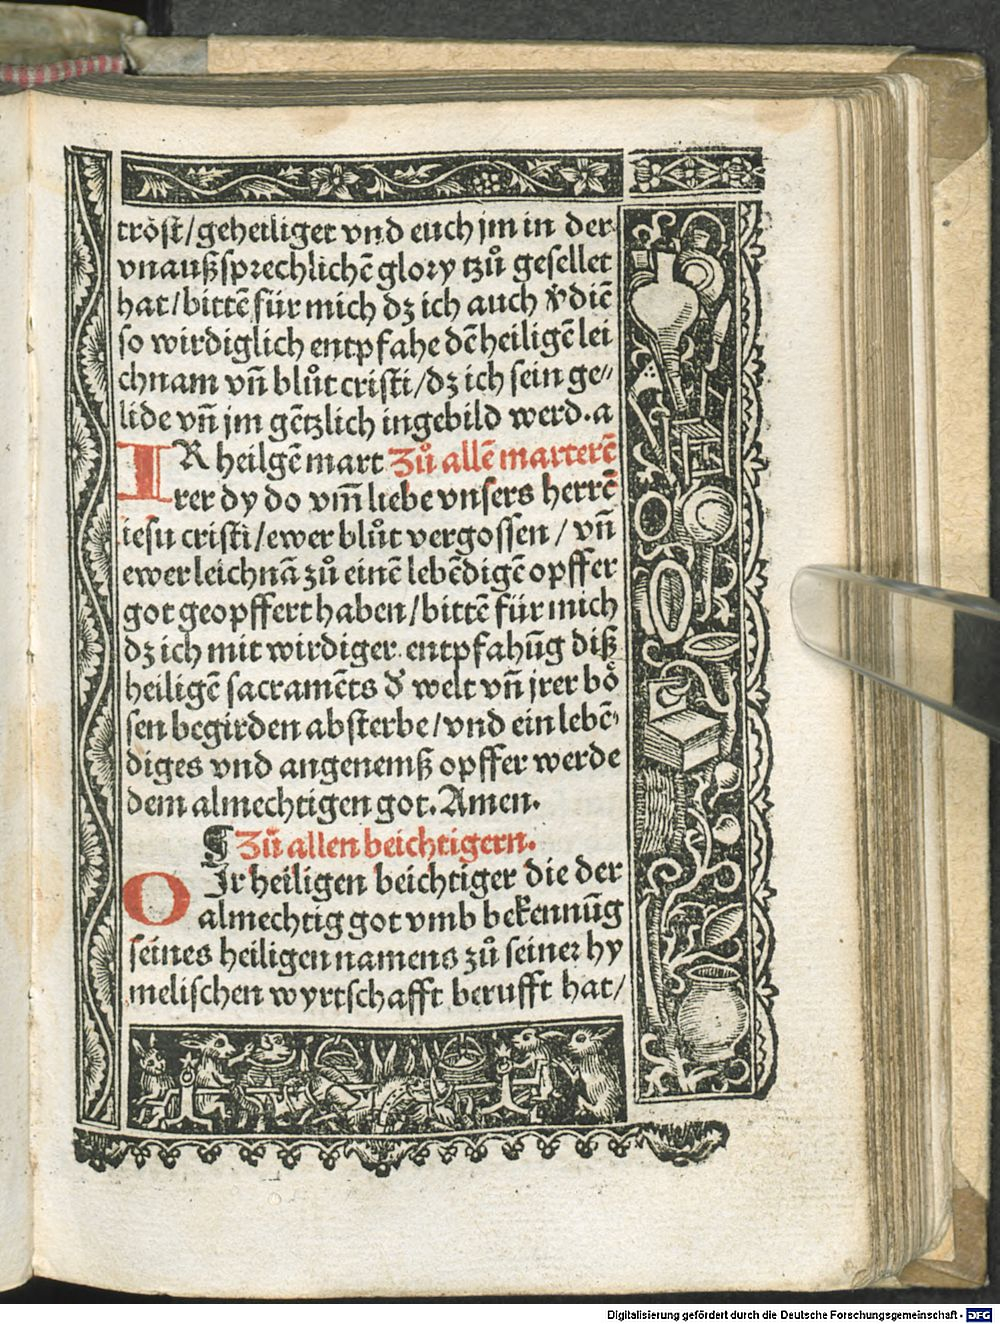 tröst/geheiliget vnd euch jm in der
vnaußsprechlichē glory tzů gesellet
hat/bittē für mich dz ich auch v̄ diē
so wirdiglich entpfahe dē heiligē lei
chnam vñ blůt cristi/dz ich sein ge⸗
lide vñ jm gētzlich ingebild werd.a
IR heilgē mart Zů allē marterē
rer dy do vm̄ liebe vnsers herrē
iesu cristi/ewer blůt vergossen/vñ
ewer leichnā zů einē lebēdigē opffer
got geopffert haben/bittē für mich
dz ich mit wirdiger entpfahūg diß
heiligē sacramēts d̄ welt vñ jrer bö
sen begirden absterbe/vnd ein lebē⸗
diges vnd angenemß opffer werde
dem almechtigen got.Amen.
¶ Zů allen beichtigern.
O Ir heiligen beichtiger die der
almechtig got vmb bekennūg
seines heiligen namens zů seiner hy
melischen wyrtschafft berufft hat/
Digitalisierung gefördert durch die Deutsche Forschungsgemeinschaft - DFG